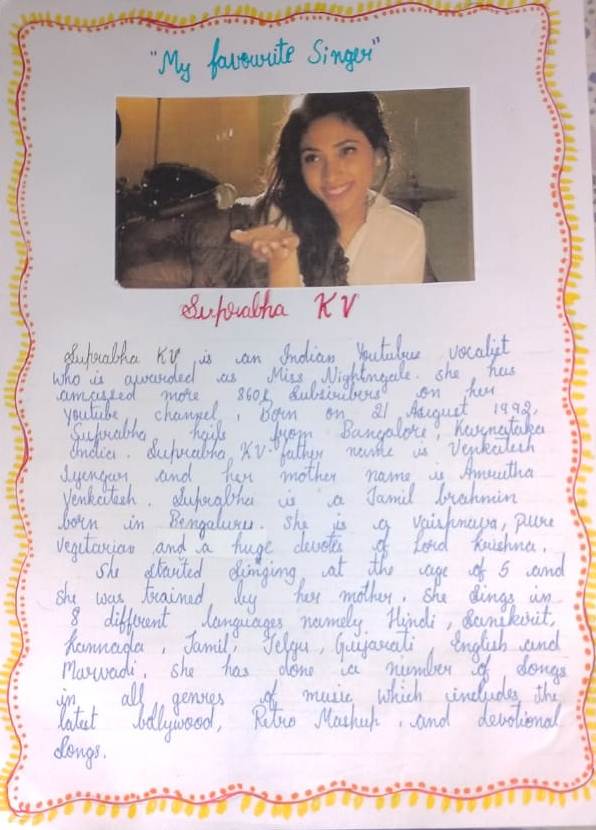 "My favourite Singer"
Suprabha KV
Suprabha KV is an Indian Youtube vocalist
who is awarded as Miss Nightngale. she has
amassed more 860k Subscribers on her
youtube channel, Born on 21 August 1992,
Suprabha hails from Bangalore, Karnataka
India. Suprabha KV father name is Venkatesh
Iyengar and her mother name is Amrutha
Venkatesh. Suprabha is a Tamil brahmin
born in Bengaluru. She is a vaishnava, pure
vegitarian and a huge devotee of Lord Krishna.
She started singing at the age of 5 and
she was trained by her mother. She sings in
8 different languages namely Hindi, Sanskrit,
Kannada, Tamil, Telgu, Gujarati English and
Marwadi. She has done a number of songs
in all genres of music which includes the
latest bollywood, Retro Mashup, and devotional
songs.